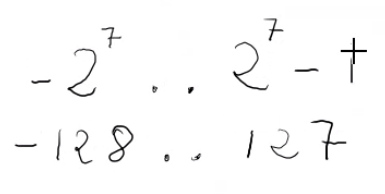 -2⁷ .. 2⁷-1
-128 .. 127